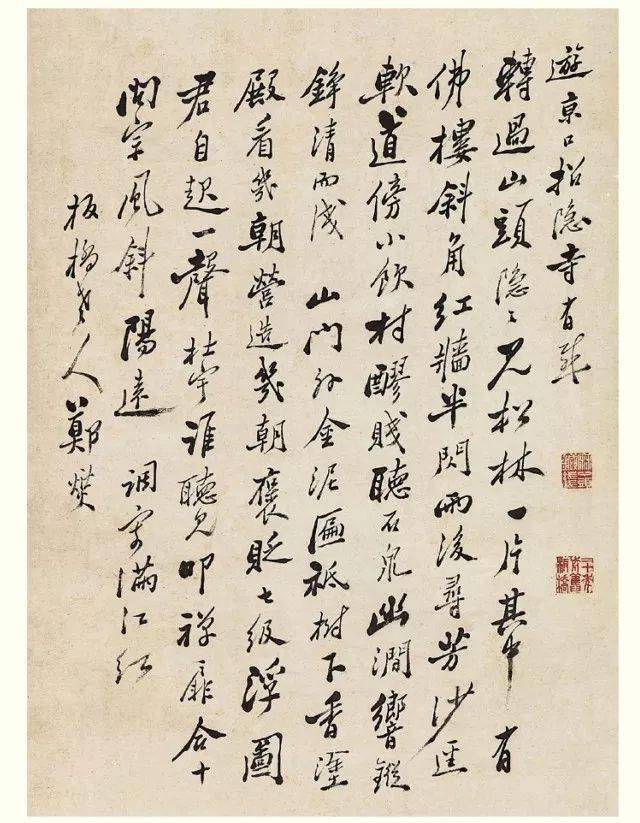 遊京口招隐寺有
轉過山頭隐〻見松林一片其中有
佛樓斜角紅牆半閃雨後尋芳沙逕
軟道傍小飲村醪賤聽石泉幽澗響鏦
錚清而淺 山門外金泥匾祗樹下香塗
殿看幾朝營造幾朝褒貶七级浮圖
君自起一聲杜宇誰聽見叩禅扉合十
問宗風斜陽遠 調寄滿江紅
板橋老人鄭燮